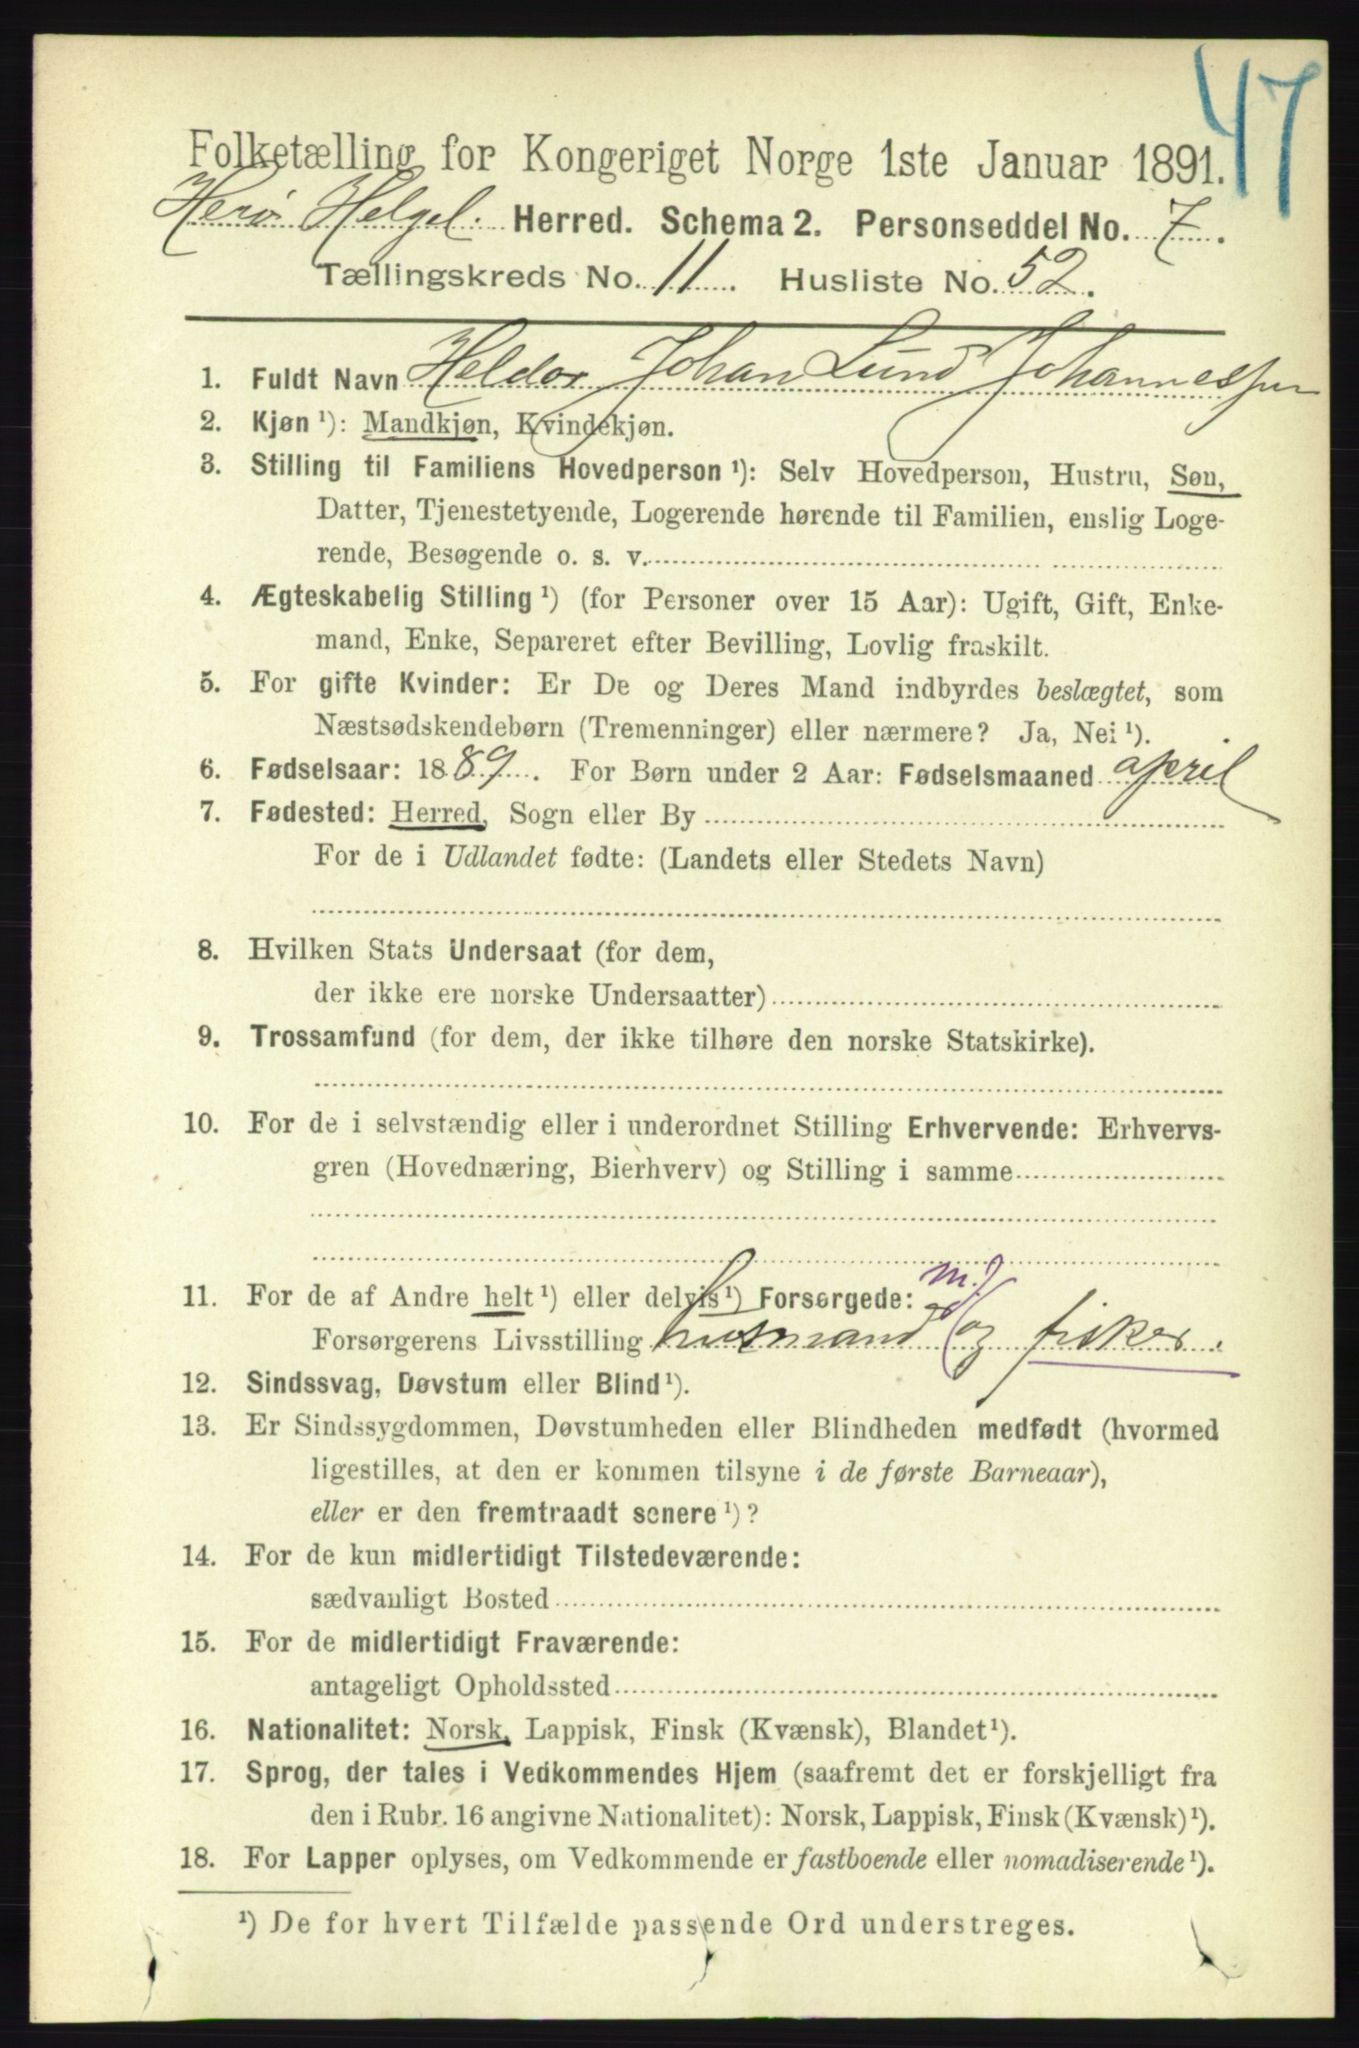 47
Folketælling for Kongeriget Norge 1ste Januar 1891.
Herø Helgel. Herred. Schema 2. Personseddel No. 7.
Tællingskreds No. 11. Husliste No. 52.
1. Fuldt Navn Heldor Johan Lund Johannessen
2. Kjøn ¹): Mandkjøn, Kvindekjøn.
3. Stilling til Familiens Hovedperson ¹): Selv Hovedperson, Hustru, Søn,
Datter, Tjenestetyende, Logerende hørende til Familien, enslig Loge-
rende, Besøgende o. s. v.
4. Ægteskabelig Stilling ¹) (for Personer over 15 Aar): Ugift, Gift, Enke-
mand, Enke, Separeret efter Bevilling, Lovlig fraskilt.
5. For gifte Kvinder: Er De og Deres Mand indbyrdes beslægtet, som
Næstsødskendebørn (Tremenninger) eller nærmere? Ja, Nei ¹).
6. Fødselsaar: 1889. For Børn under 2 Aar: Fødselsmaaned april
7. Fødested: Herred, Sogn eller By
For de i Udlandet fødte: (Landets eller Stedets Navn)
8. Hvilken Stats Undersaat (for dem,
der ikke ere norske Undersaatter)
9. Trossamfund (for dem, der ikke tilhøre den norske Statskirke).
10. For de i selvstændig eller i underordnet Stilling Erhvervende: Erhvervs-
gren (Hovednæring, Bierhverv) og Stilling i samme
11. For de af Andre helt ¹) eller delvis ¹) Forsørgede: m. J
Forsørgerens Livsstilling husmand og fisker.
12. Sindssvag, Døvstum eller Blind ¹).
13. Er Sindssygdommen, Døvstumheden eller Blindheden medfødt (hvormed
ligestilles, at den er kommen tilsyne i de første Barneaar),
eller er den fremtraadt senere ¹)?
14. For de kun midlertidigt Tilstedeværende:
sædvanligt Bosted
15. For de midlertidigt Fraværende:
antageligt Opholdssted
16. Nationalitet: Norsk, Lappisk, Finsk (Kvænsk), Blandet ¹).
17. Sprog, der tales i Vedkommendes Hjem (saafremt det er forskjelligt fra
den i Rubr. 16 angivne Nationalitet): Norsk, Lappisk, Finsk (Kvænsk) ¹).
18. For Lapper oplyses, om Vedkommende er fastboende eller nomadiserende ¹).
¹) De for hvert Tilfælde passende Ord understreges.